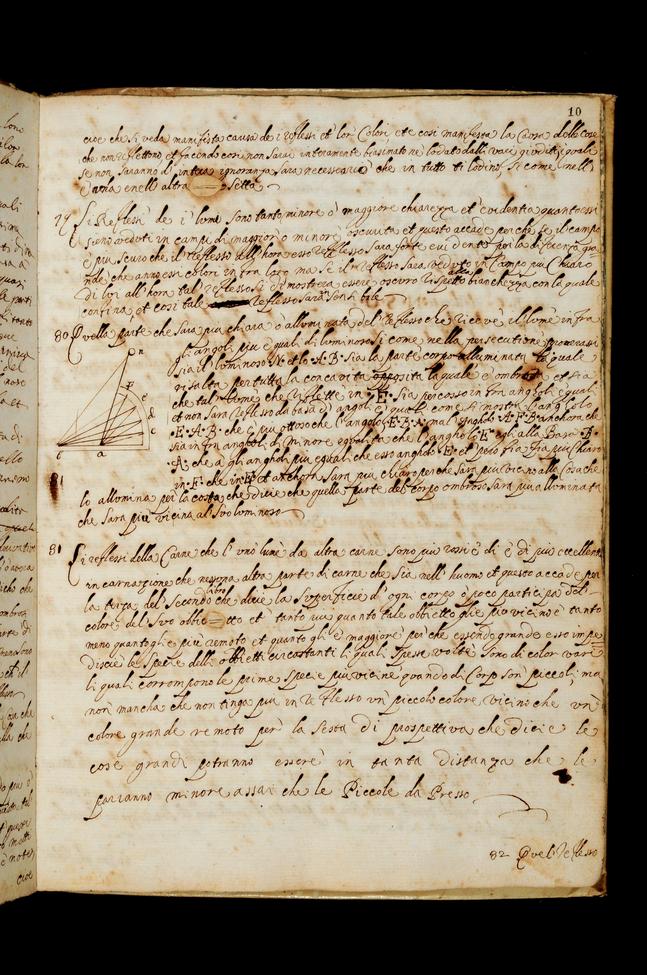 10
cioe che si veda manifesta causa de i reflessi et lor Colori et e cosi manifesta la Causa delle cose
che non reflettono et facendo cosi non sarai interamente biasimato ne lodato dalli varij giuditij i quali
se non saranno d'intera ignoranza sara necessario che in tutto ti lodino, si come nell
una e nell altra setta
79 Li Reflessi de i lumi sono tanto minore ò maggiore chiarezza et evidentia quanto essi
siano veduti in campi di maggior o minore oscurità et questo accade perche se il campo
è piu scuro che il reflesso all'hora esso reflesso sara forte evidente per la differenza gra
nde che anno essi colori in fra loro ma se il reflesso sara veduto in campo piu chiaro
di lui all'hora tal reflesso si dimostrera essere oscuro rispetto alla bianchezza con la quale
confina et cosi tale reflesso sara insensibile
80 Quella parte che sara piu chiara ò alluminata del reflesso che riceve il lume in fra
gli angoli piu equali di luminoso si come nella persecutione
sia il luminoso N et lo A B sia la parte corpo alluminata la quale
risalta per tutta la concavità opposita la quale è ombrosa et sia
che tal lume che reflette in E sia percosso in fra angholi equali
et non sara reflesso da basa di angoli equali come si mostri l'angholo
E A B che è piu ottoso che l'angolo E B A ma l'angholo A F B anchora che
sia in fra angholi di minore equalita che l'angholo E egli alla Basa B
A che a gli angholi piu equali che esso angholo E et pero fia piu chiaro
in F che in E et anchora sara piu chiaro perche sara piu vicino alla cosa che
lo allumina per la costa che dicie che quella parte del corpo ombroso sara piu alluminata
che sara piu vicina al suo luminoso
n
F
e
d
c
b
a
81 Li reflessi della Carne che l'uno lume da altra carne sono piu rossi e di è di piu eccellente
in carnazione che nessuna altra parte di carne che sia nell'huomo et questo accade per
la terza del secondo libro che dicie la superficie d'ogni corpo opoco participa del
colore del suo obbietto et tanto piu quanto tale obbietto gli è piu vicino e tanto
meno quanto gli è piu remoto et quanto gli è maggiore per che essendo grande esso impe
discie le specie delli obbietti circostanti li quali spesse volte sono di color varij
li quali corrompono le prime specie piu vicine quando di Corpi son piccoli; ma
non mancha che non tinga piu in reflesso un piccolo colore vicino che un
colore grande remoto per la Sesta di prospettiva che dicie le
cose grandi potranno essere in tanta distanza che le
parranno minore assai che le Piccole da Presso
82 Quel Reflesso